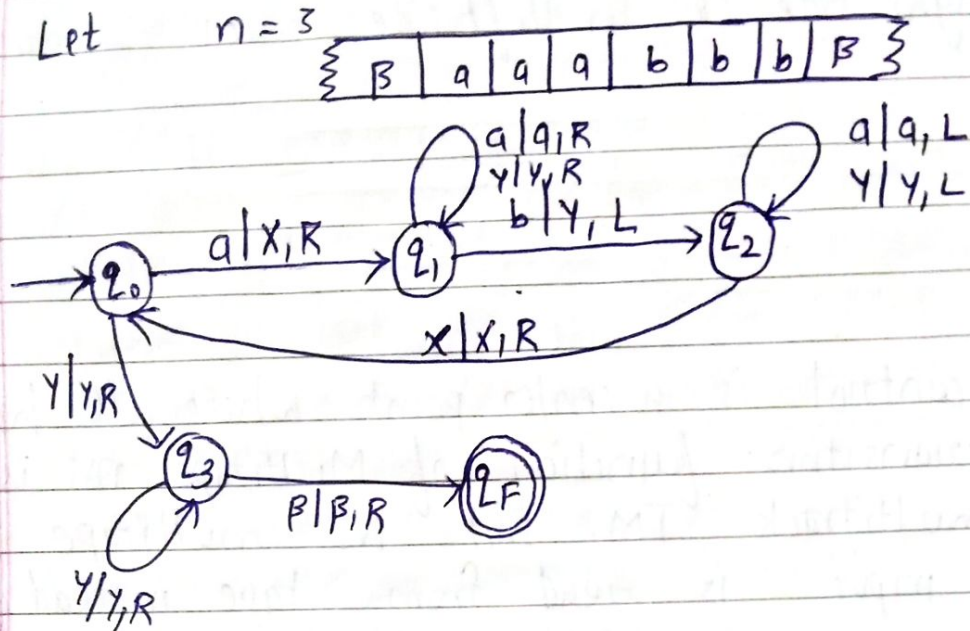 Let n = 3
B a a a b b b B
a|a, R
Y|Y, R
a|a, L
Y|Y, L
a|X, R
b|Y, L
q0
q1
q2
X|X, R
Y|Y, R
q3
β|β, R
qF
Y|Y, R